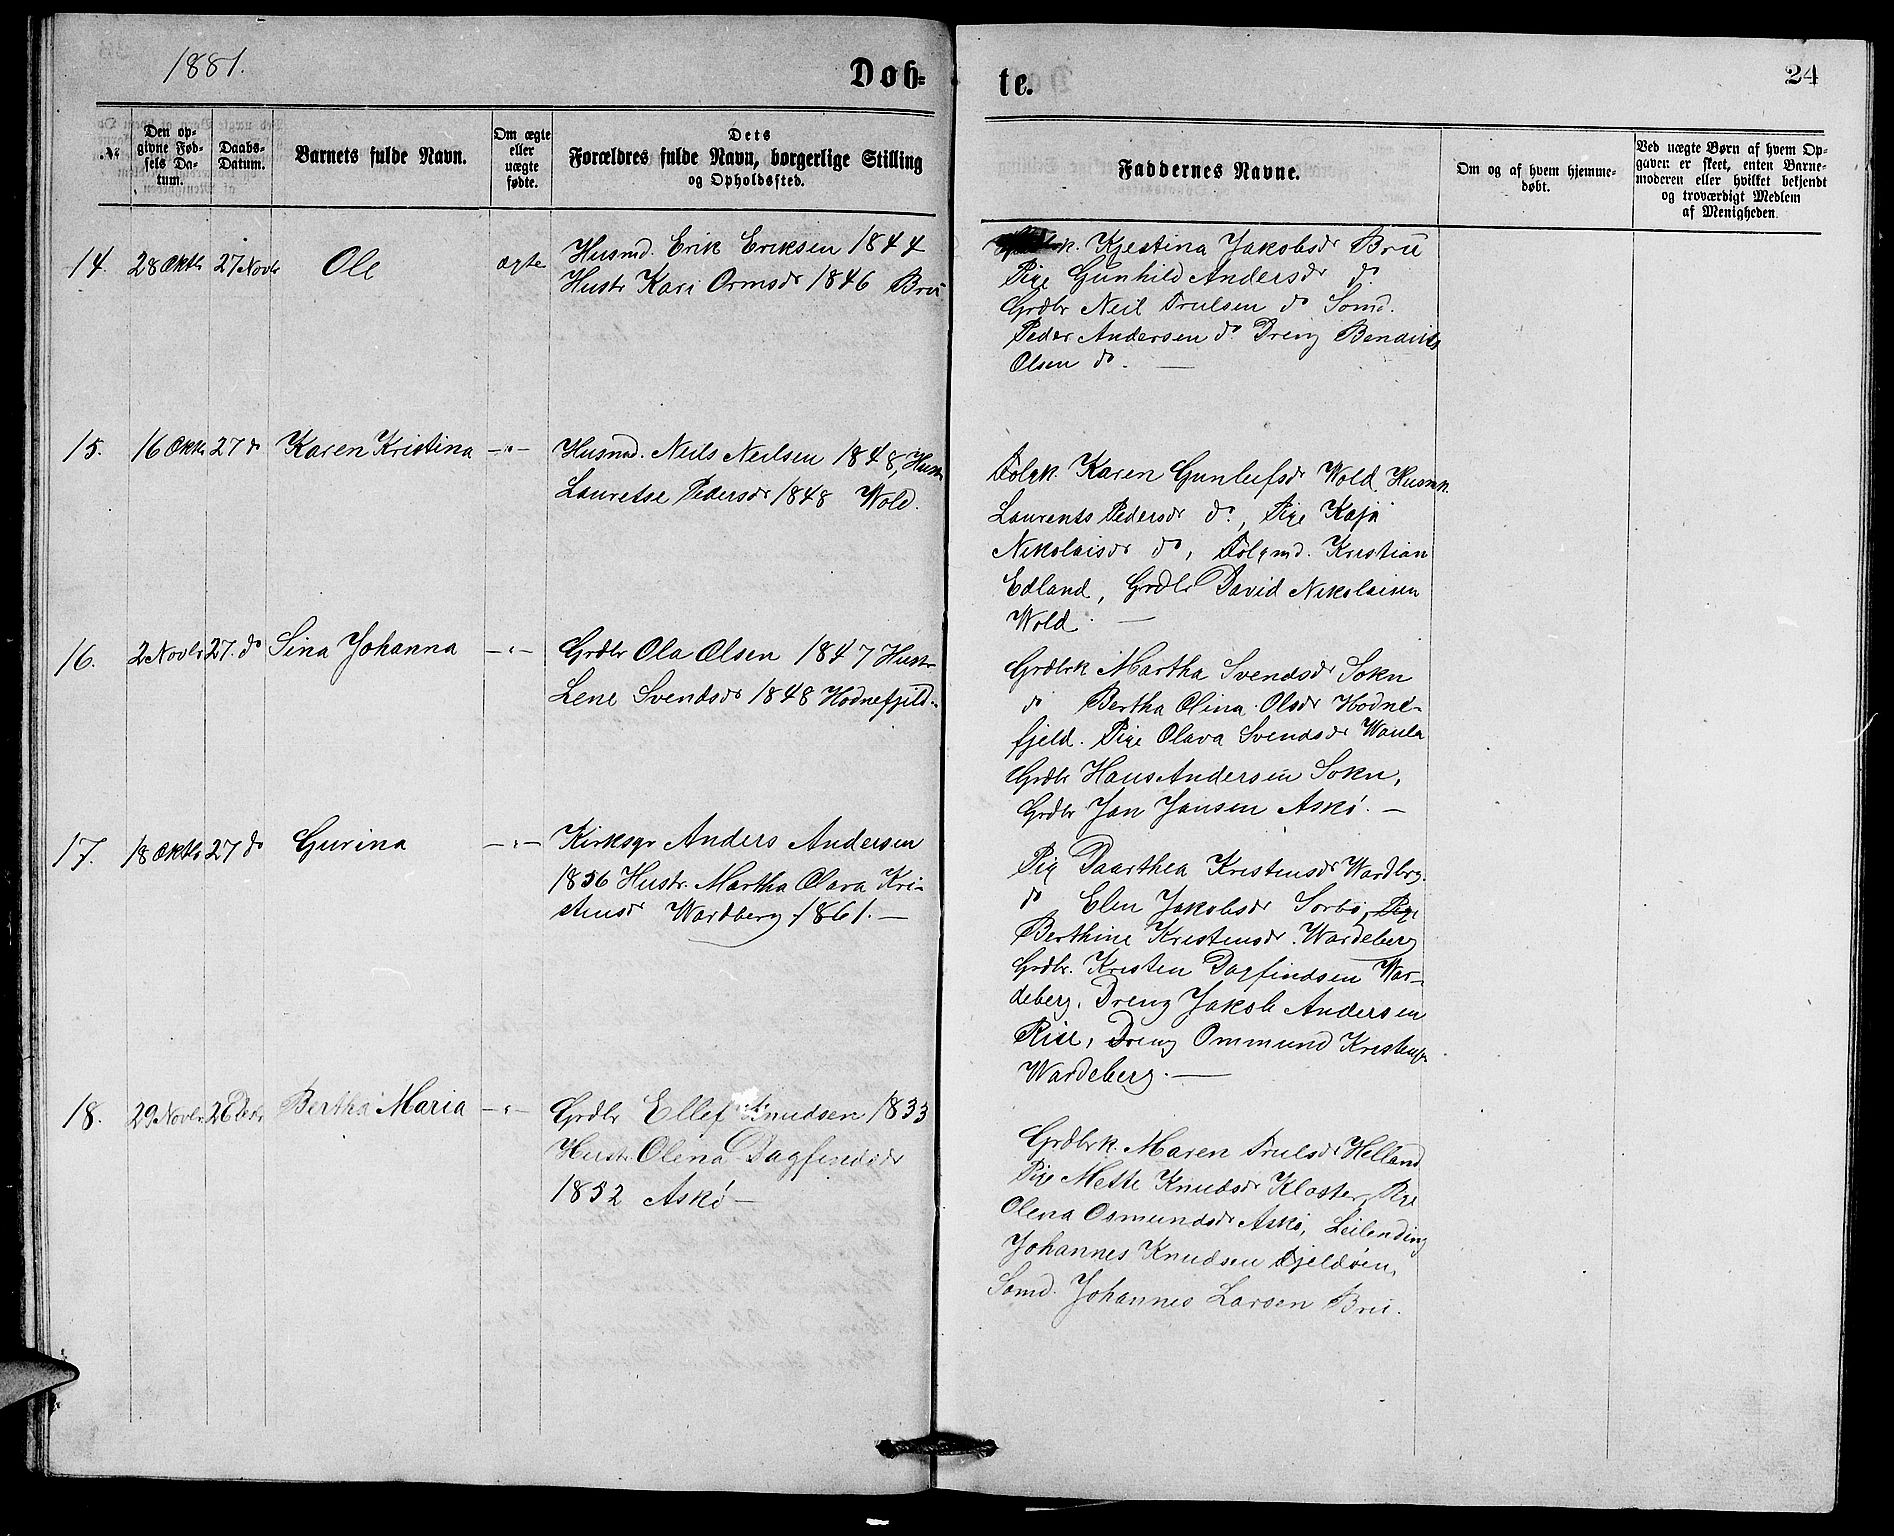 1881.
Døb-
te.
24
№
Den op-
givne Fød-
sels Da-
tum.
Daabs-
Datum.
Barnets fulde Navn.
Om ægte
eller
uægte
fødte.
Dets
Forældres fulde Navn, borgerlige Stilling
og Opholdssted.
Faddernes Navne.
Om og af hvem hjemme-
døbt.
Ved uægte Børn af hvem Op-
gaven er skeet, enten Barne-
moderen eller hvilket bekjendt
og troværdigt Medlem
af Menigheden.
14. 28 Oktb 27 Novbr Ole ægte
Husmd. Erik Eriksen 1844
Hustr Kari Ormsdr 1846 Bru
Kjestina Jakobsdr Bru
Pige Gunhild Andersdr do
Grdbr Neil Trulsen do Somd.
Peder Andersen do Dreng Bendiks
Olsen do. —
15. 16 Oktb 27 do Karen Kristina —"—
Husmd. Neils Neilsen 1848, Hustr
Lauretse Pedersdr 1848 Wold.
Folgk. Karen Gunleifsdr Wold Husmk.
Laurents Pedersdr do, Pige Kaja
Nikolaisdr do, Folgmd. Kristian
Edland, Grdbr David Nikolaisen
Wold. —
16. 2 Novbr 27. do Sina Johanna —"—
Grdbr Ola Olsen 1847 Hustr
Lene Svendsdr 1848 Hodnefjeld.
Grdbrk Martha Svendsdr Sokn
do Bertha Olina Olsdr Hodne-
fjeld. Pige Olava Svendsdr Waula
Grdbr Hans Andersen Sokn,
Grdbr Jan Jansen Askø. —
17. 18 Oktb 27 do Gurina —"—
Kirksgr Anders Andersen
1856 Hustr. Martha Olava Kri-
stensdr Wardberg 1861. —
Pig Daarthea Kristensdr Wardbrg.
do Elen Jakobsdr Sørbø, Pige
Berthine Kristensdr. Wardeberg
Grdbr. Kristen Dagfindsen War-
deberg, Dreng Jakob Andersen
Rise, Dreng Ommund Kristensen
Wardeberg. —
18. 29 Novbr 26 Debr Bertha Maria —"—
Grdbr Ellef Knudsen 1833
Hustr. Olena Dagfindsdr
1832 Askø —
Grdbrk. Maren Trulsdr Helland
Pige Mette Knudsdr Kloster, Pige
Olena Osmundsdr Askø, Leilending
Johannes Knudsen Fjeldøen,
Somd. Johannes Larsen Bru.